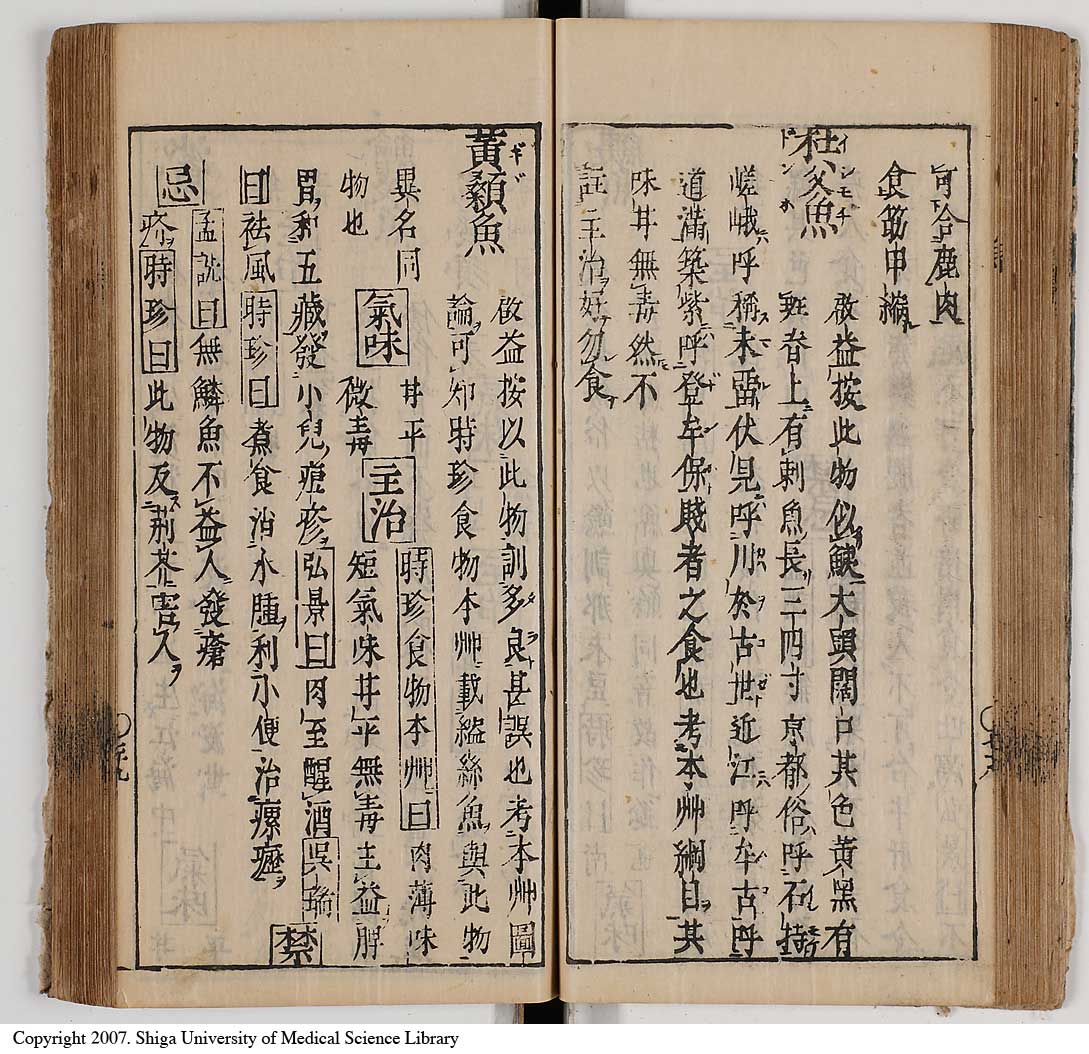 可合鹿肉
食筋甲縮
杜父魚
啟益按此物似鮧大頭闊口其色黄黒有
斑脊上有刺魚長三四寸京都俗呼石持
嵯峨呼稱末畱伏見呼川於古世近江呼牟古呼
道滿築紫呼登牟保賤者之食也考本艸綱目其
味甘無毒然不
註主治好勿食
黃顙魚
啟益按以此物訓多良甚誤也考本艸圖
論可知時珍食物本艸載䱀絲魚與此物
異名同
物也
氣味
甘平
微毒
主治
時珍食物本艸曰肉薄味
短氣味甘平無毒主益脾
胃和五藏發小兒痘疹弘景曰肉至醒酒呉瑞
曰祛風時珍曰煮食治水腫利小便治瘰癧
禁
忌
孟詵曰無鱗魚不益人發瘡
疥時珍曰此物反荊芥害人
Copyright 2007. Shiga University of Medical Science Library